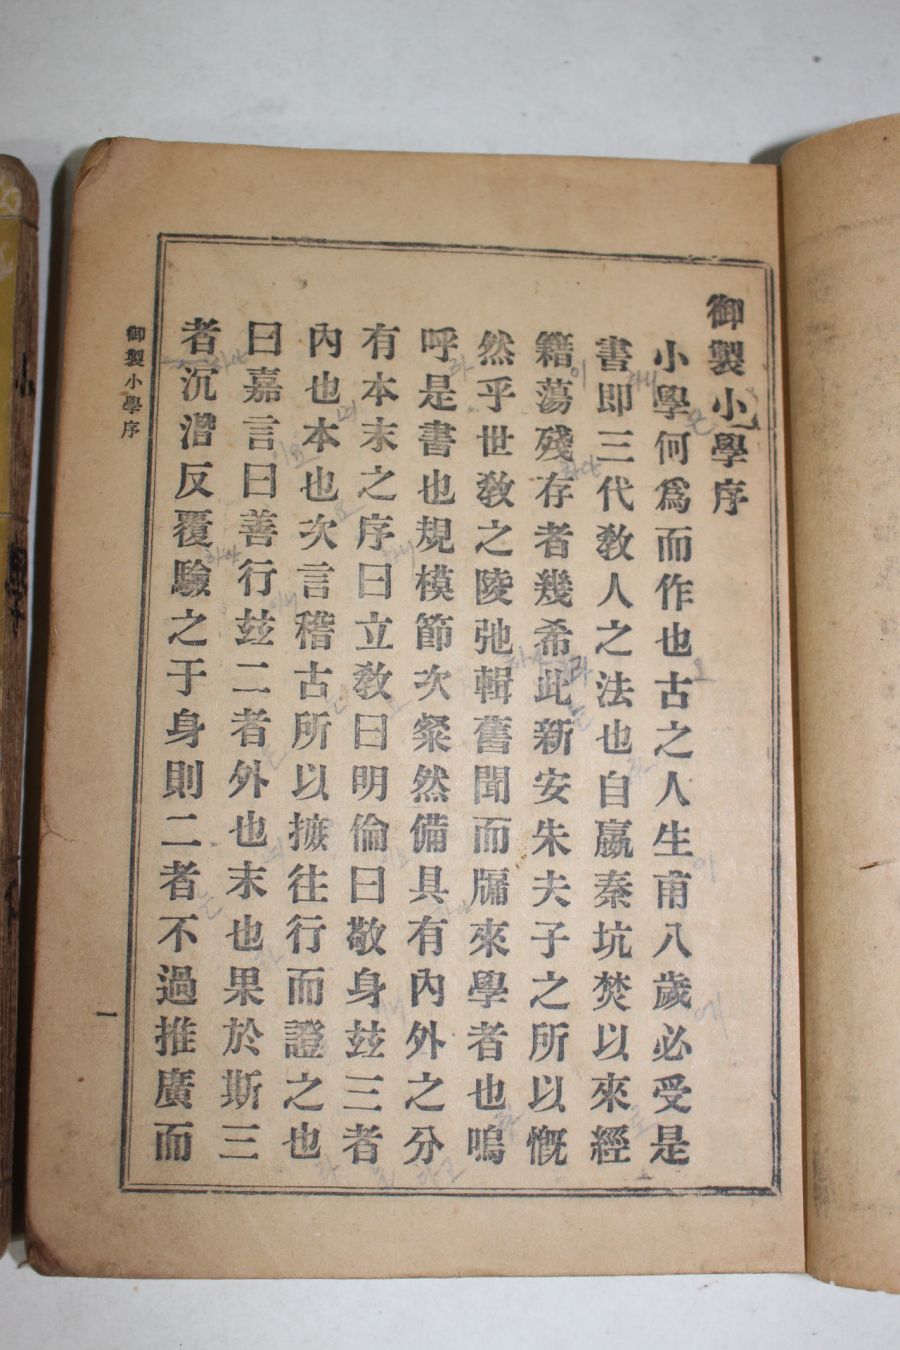 御製小學序
小學何爲而作也古之人生甫八歲必受是
書即三代敎人之法也自嬴秦坑焚以來經
籍蕩殘存者幾希此新安朱夫子之所以慨
然乎世敎之陵弛輯舊聞而牖來學者也嗚
呼是書也規模節次粲然備具有內外之分
有本末之序曰立敎曰明倫曰敬身玆三者
內也本也次言稽古所以摭往行而證之也
曰嘉言曰善行玆二者外也末也果於斯三
者沉潛反覆驗之于身則二者不過推廣而
御製小學序
一